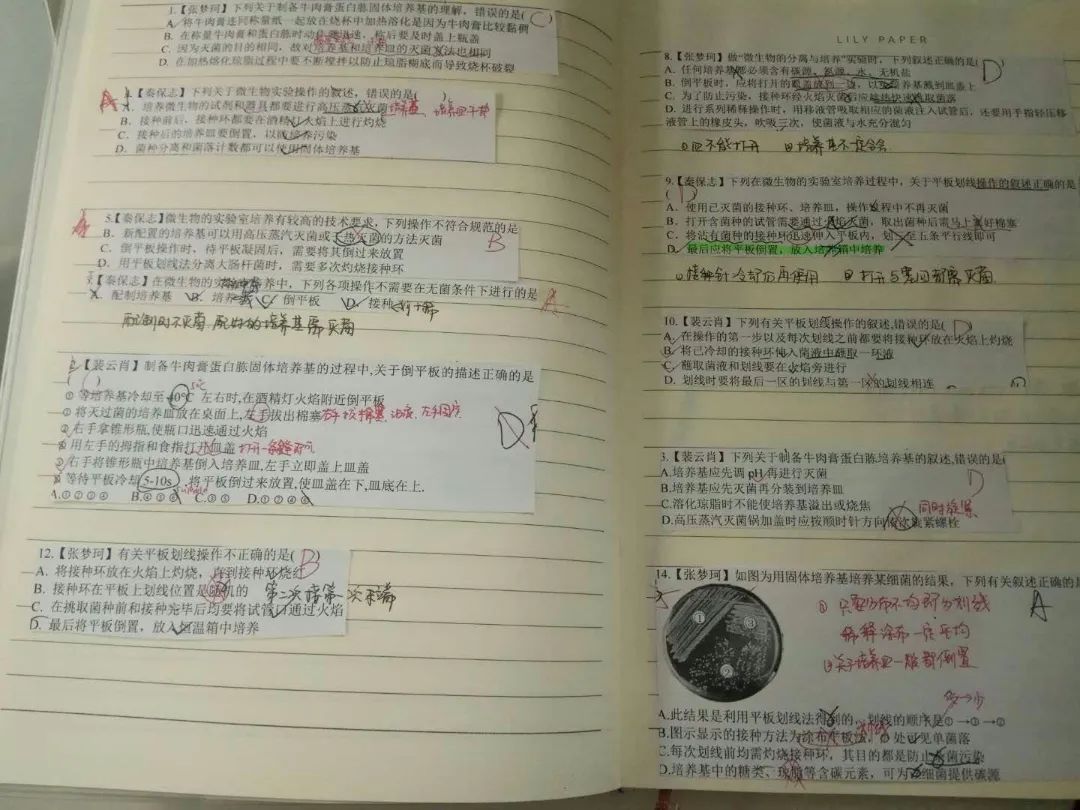 1.【张梦珂】下列关于制备牛肉膏蛋白胨固体培养基的理解,错误的是( C )
A. 将牛肉膏连同称量纸一起放在烧杯中加热溶化是因为牛肉膏比较黏稠
B. 在称量牛肉膏和蛋白胨时动作要迅速,称后要及时盖上瓶盖
C. 因为灭菌的目的相同,故对培养基和培养皿的灭菌方法也相同
D. 在加热熔化琼脂过程中要不断搅拌以防止琼脂糊底而导致烧杯破裂
【秦保志】下列关于微生物实验操作的叙述,错误的是
A
A. 培养微生物的试剂和器具都要进行高压蒸汽灭菌
B. 接种前后,接种环都要在酒精灯火焰上进行灼烧
C. 接种后的培养皿要倒置,以防培养污染
D. 菌种分离和菌落计数都可以使用固体培养基
5.【秦保志】微生物的实验室培养有较高的技术要求,下列操作不符合规范的是
B. 新配置的培养基可以用高压蒸汽灭菌或干热灭菌的方法灭菌
B
C. 倒平板操作时,待平板凝固后,需要将其倒过来放置
D. 用平板划线法分离大肠杆菌时,需要多次灼烧接种环
【秦保志】在微生物的实验室培养中,下列各项操作不需要在无菌条件下进行的是
A. 配制培养基 B. 培养 C. 倒平板 D. 接种
配制时不灭菌 配好的培养基需灭菌
2.【裴云肖】制备牛肉膏蛋白胨固体培养基的过程中,关于倒平板的描述正确的是
( )
①等培养基冷却至40℃左右时,在酒精灯火焰附近倒平板
50℃
②将灭过菌的培养皿放在桌面上,左手拔出棉塞
③右手拿锥形瓶,使瓶口迅速通过火焰
④用左手的拇指和食指打开皿盖 打开一条缝即可
⑤右手将锥形瓶中培养基倒入培养皿,左手立即盖上皿盖
⑥等待平板冷却5-10s,将平板倒过来放置,使皿盖在下,皿底在上.
D
12.【张梦珂】有关平板划线操作不正确的是( B )
A. 将接种环放在火焰上灼烧,直到接种环烧红
B. 接种环在平板上划线位置是随机的
C. 在挑取菌种前和接种完毕后均要将试管口通过火焰
D. 最后将平板倒置,放入恒温箱中培养
LILY PAPER
8.【张梦珂】做“微生物的分离与培养”实验时,下列叙述正确的是( D
A. 任何培养基都必须含有碳源、氮源、水、无机盐
B. 倒平板时,应将打开的皿盖放到一边,以免培养基溅到皿盖上
C. 为了防止污染,接种环经火焰灭菌后应趁热快速挑取菌落
D. 进行系列稀释操作时,用移液管吸取相应的菌液注入试管后,还要用手指轻压移
液管上的橡皮头,吹吸三次,使菌液与水充分混匀
①皿不能打开 ②培养基不一定含
9.【秦保志】下列在微生物的实验室培养过程中,关于平板划线操作的叙述正确的是
( D
A. 使用已灭菌的接种环、培养皿,操作过程中不再灭菌
B. 打开含菌种的试管需要通过火焰灭菌,取出菌种后需马上塞好棉塞
C. 将沾有菌种的接种环迅速伸入平板内,划三至五条平行线即可
D. 最后应将平板倒置,放入培养箱中培养
①接种针冷却后再使用 ②打开与塞回都需灭菌
10.【裴云肖】下列有关平板划线操作的叙述,错误的是( D )
A. 在操作的第一步以及每次划线之前都要将接种环放在火焰上灼烧
B. 将已冷却的接种环伸入菌液中蘸取一环液
C. 蘸取菌液和划线要在火焰旁进行
D. 划线时要将最后一区的划线与第一区的划线相连
3.【裴云肖】下列关于制备牛肉膏蛋白胨培养基的叙述,错误的是(
D
A.培养基应先调 pH 再进行灭菌
B.培养基应先灭菌再分装到培养皿
C.溶化琼脂时不能使培养基溢出或烧焦
D.高压蒸汽灭菌锅加盖时应按顺时针方向依次旋紧螺栓
同时旋紧
14.【张梦珂】如图为用固体培养基培养某细菌的结果,下列有关叙述正确的是
A
① ③ ②
①只要分布不均即为划线
稀释涂布一定平均
②关于培养皿一般都倒置
多→少
A.此结果是利用平板划线法得到的,划线的顺序是①→③→②
B.图示显示的接种方法为涂布平板法,②处可见单菌落
划线
C.每次划线前均需灼烧接种环,其目的都是防止杂菌污染
D.培养基中的糖类、琼脂等含碳元素,可为该细菌提供碳源